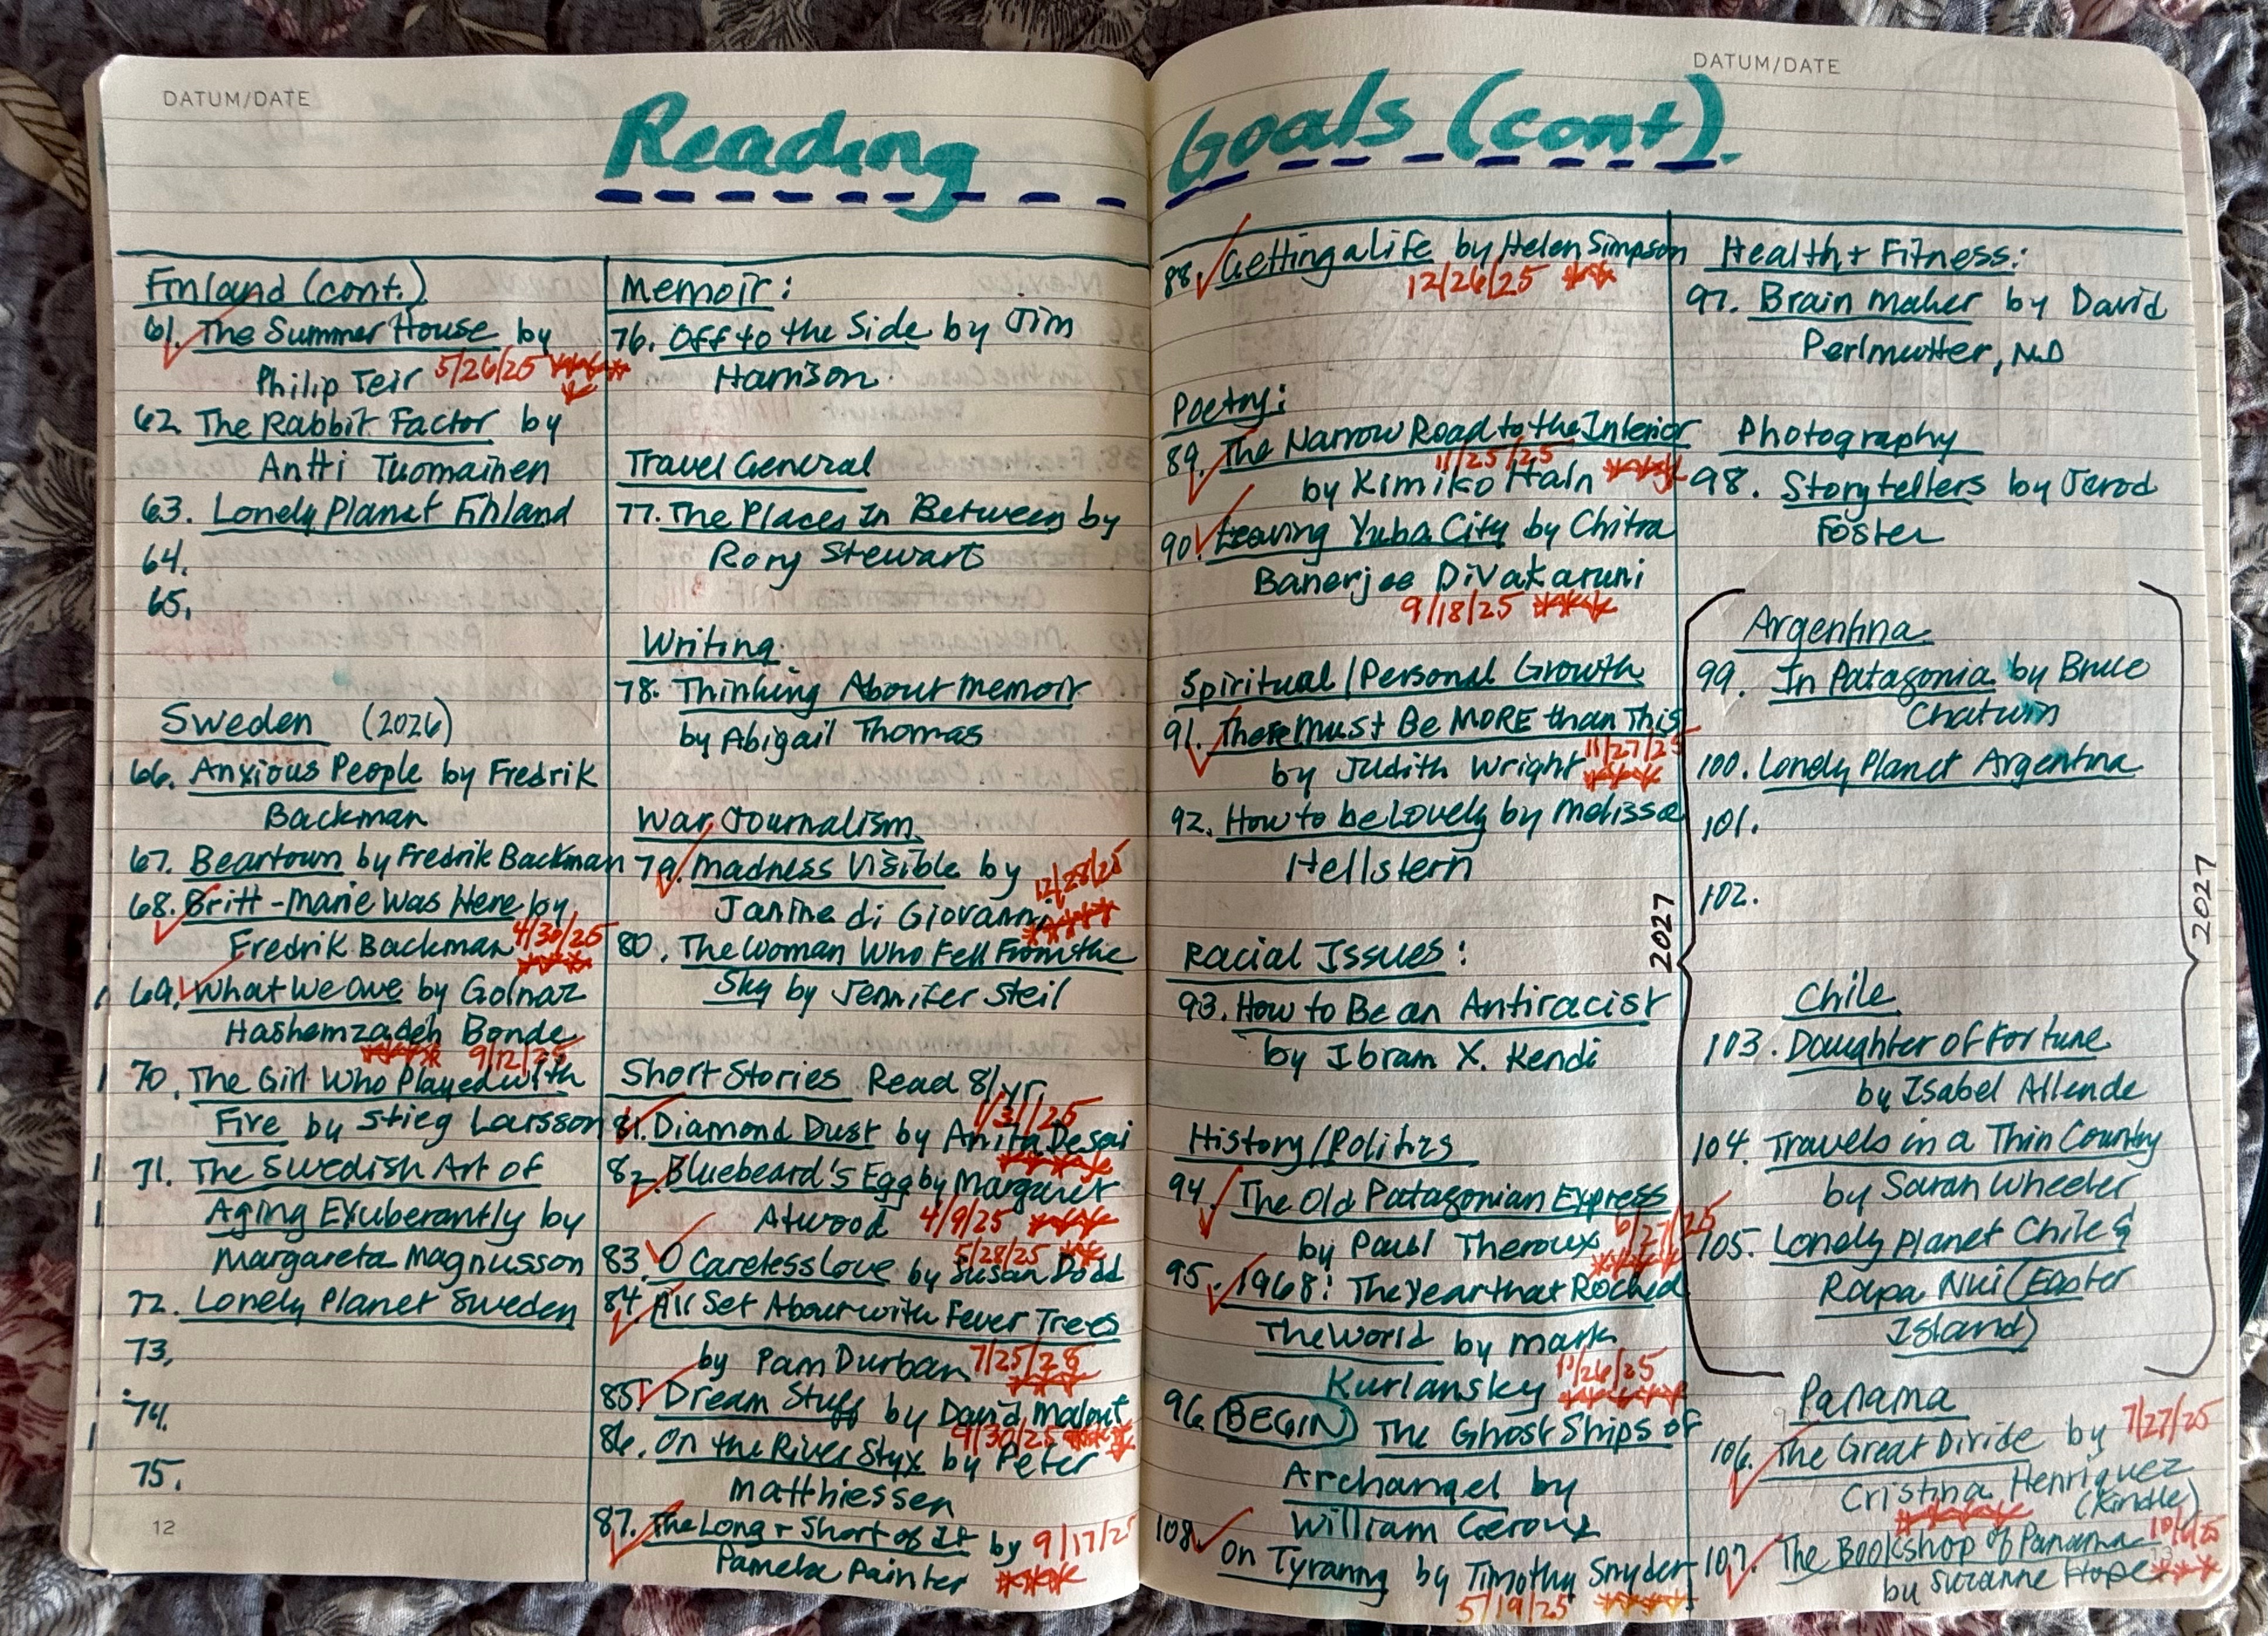 DATUM/DATE
DATUM/DATE
Reading Goals (cont).
Finland (cont.)
61. The Summer House by
Philip Teir 5/26/25 *****
62. The Rabbit Factor by
Antti Tuomainen
63. Lonely Planet Finland
64.
65.
Sweden (2026)
66. Anxious People by Fredrik
Backman
67. Beartown by Fredrik Backman
68. Britt-Marie Was Here by
Fredrik Backman 4/30/25
****
69. What We Owe by Golnaz
Hashemzadeh Bonde
**** 9/12/25
70. The Girl Who Played with
Fire by Stieg Larsson
71. The Swedish Art of
Aging Exuberantly by
Margareta Magnusson
72. Lonely Planet Sweden
73.
74.
75.
12
Memoir:
76. Off to the Side by Jim
Harrison
Travel General
77. The Places In Between by
Rory Stewart
Writing
78. Thinking About Memoir
by Abigail Thomas
War Journalism
79. Madness Visible by 12/28/25
Janine di Giovanni ****
80. The Woman Who Fell From the
Sky by Jennifer Steil
Short Stories Read 8/yr.
1/31/25
81. Diamond Dust by Anita Desai
****
82. Bluebeard's Egg by Margaret
Atwood 4/9/25 ***
5/28/25 **
83. O Careless Love by Susan Dodd
84. All Set About with Fever Trees
by Pam Durban 7/25/25
***
85. Dream Stuff by David Malouf
9/30/25 ***
86. On the River Styx by Peter
Matthiessen
87. The Long + Short of It by 9/17/25
Pamela Painter ***
88. Getting a Life by Helen Simpson
12/26/25 **
Poetry:
89. The Narrow Road to the Interior
11/25/25
by Kimiko Hahn ****
90. Leaving Yuba City by Chitra
Banerjee Divakaruni
9/18/25 ***
Spiritual/Personal Growth
91. There Must Be MORE than This
by Judith Wright 11/27/25
***
92. How to be Lovely by Melissa
Hellstern
Racial Issues:
93. How to Be an Antiracist
by Ibram X. Kendi
History/Politics
94. The Old Patagonian Express
by Paul Theroux 6/27/25
****
95. 1968: The Year that Rocked
The World by Mark
Kurlansky 11/26/25
*****
96. BEGIN The Ghost Ships of
Archangel by
William Geroux
108. On Tyranny by Timothy Snyder
5/19/25 ****
Health + Fitness:
97. Brain Maker by David
Perlmutter, MD
Photography
98. Storytellers by Jerod
Foster
2027
Argentina
99. In Patagonia by Bruce
Chatwin
100. Lonely Planet Argentina
101.
102.
2027
Chile
103. Daughter of Fortune
by Isabel Allende
104. Travels in a Thin Country
by Saran Wheeler
105. Lonely Planet Chile &
Rapa Nui (Easter
Island)
Panama
106. The Great Divide by 7/27/25
Cristina Henriquez
(Kindle)
107. The Bookshop of Panama 10/6/25
by Suzanne Hope ***